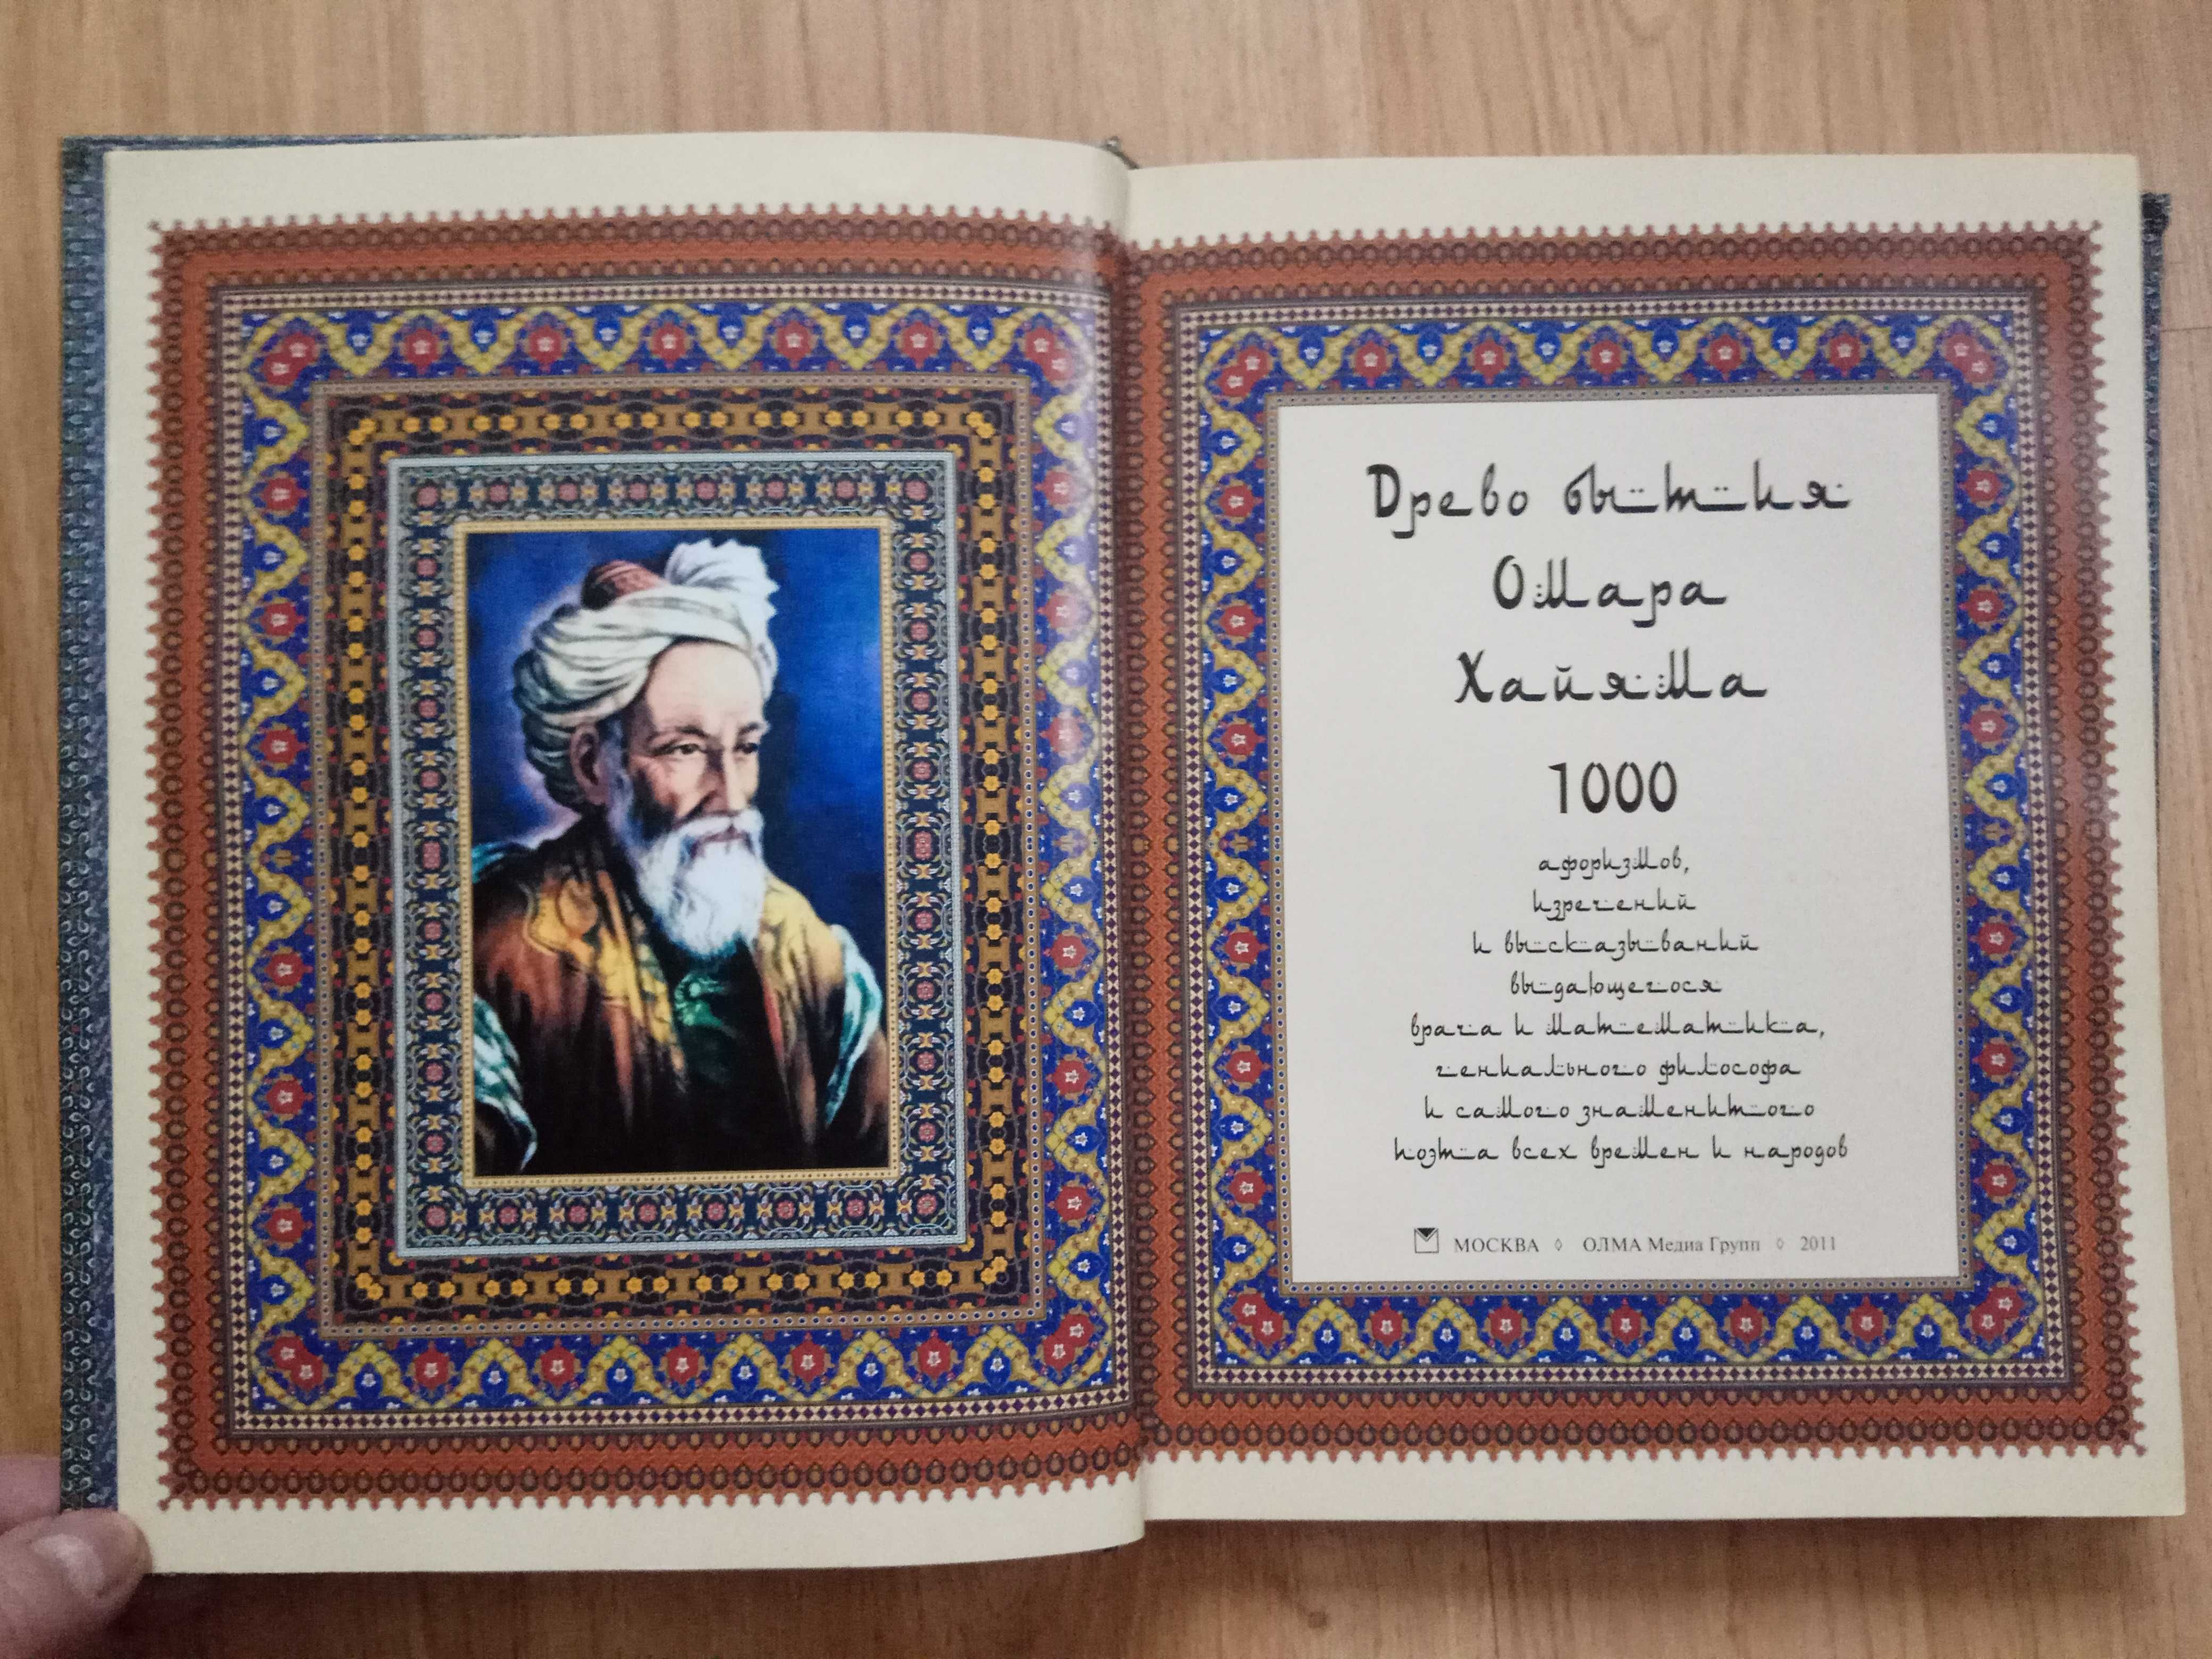 Древо бытия
Омара
Хайяма
1000
афоризмов,
изречений
и высказываний
выдающегося
врача и математика,
гениального философа
и самого знаменитого
поэта всех времен и народов
МОСКВА ◊ ОЛМА Медиа Групп ◊ 2011